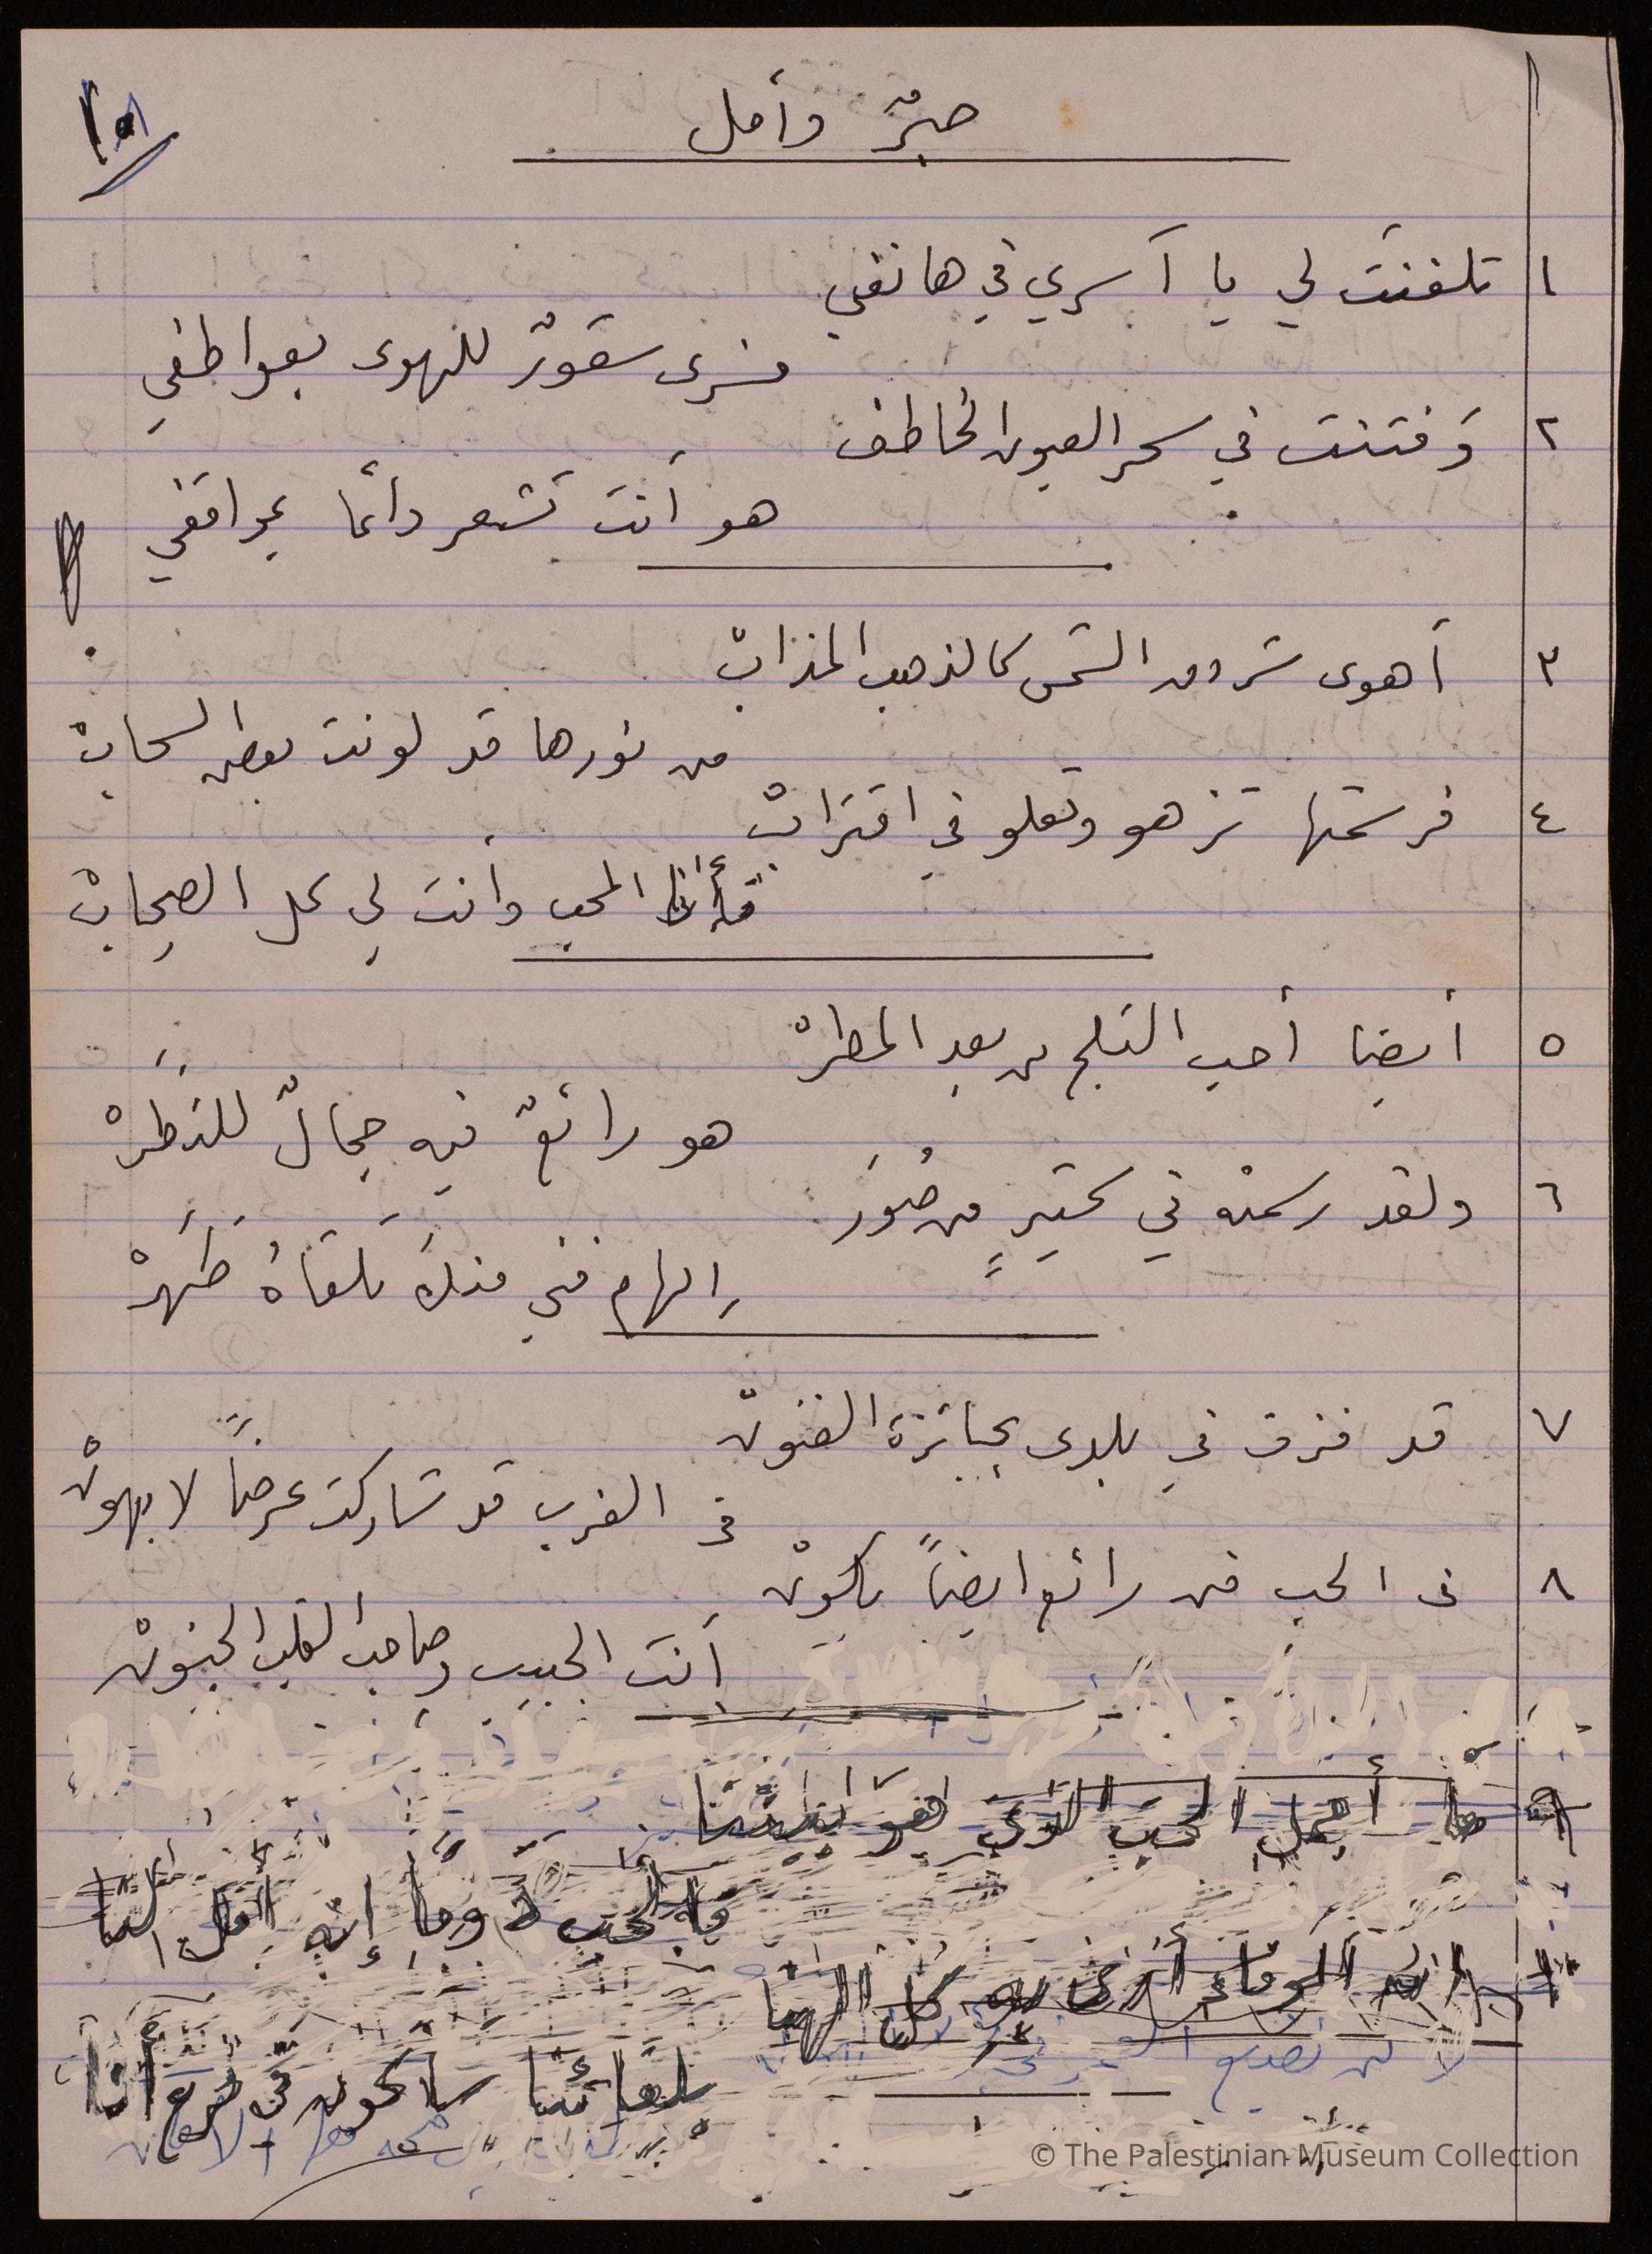 صبرٌ وأمل
١ تلفنتَ لي يا آسري في هاتفي
فسرى شعورٌ للهوى بعواطفي
٢ وَفتنت في سحر العيون الخاطف
هو أنتَ تشعر دائما بمواقفي
٣ أهوى شروق الشمس كالذهب المذابْ
من نورها قد لونت بعض السحابْ
٤ فرسمتها تزهو وتعلو في اقترابْ
فأنا المحب وأنتَ لي كل الصِحابْ
٥ أيضا أحب الثلج من بعد المطرْ
هو رائعٌ فيه جمالٌ للنَظَرْ
٦ ولقد رسمته في كثيرٍ من صُوَر
إلهام فني منكَ تلقاهُ ظَهَرْ
٧ قد فزت في بلدي بجائزة الفنونْ
في الغرب قد شاركت عرضاً لا يهونْ
٨ في الحب فن رائع ايضاً يكونْ
أنتَ الحبيب وصاحب القلب الحنونْ
٩ ما أجمل الحب الذي هو بيننا
فالحب دوماً إنه أمل لنا
إن الوفاء أرى به كل الهنا
بلقائنا سأكون في فرح أنا
© The Palestinian Museum Collection